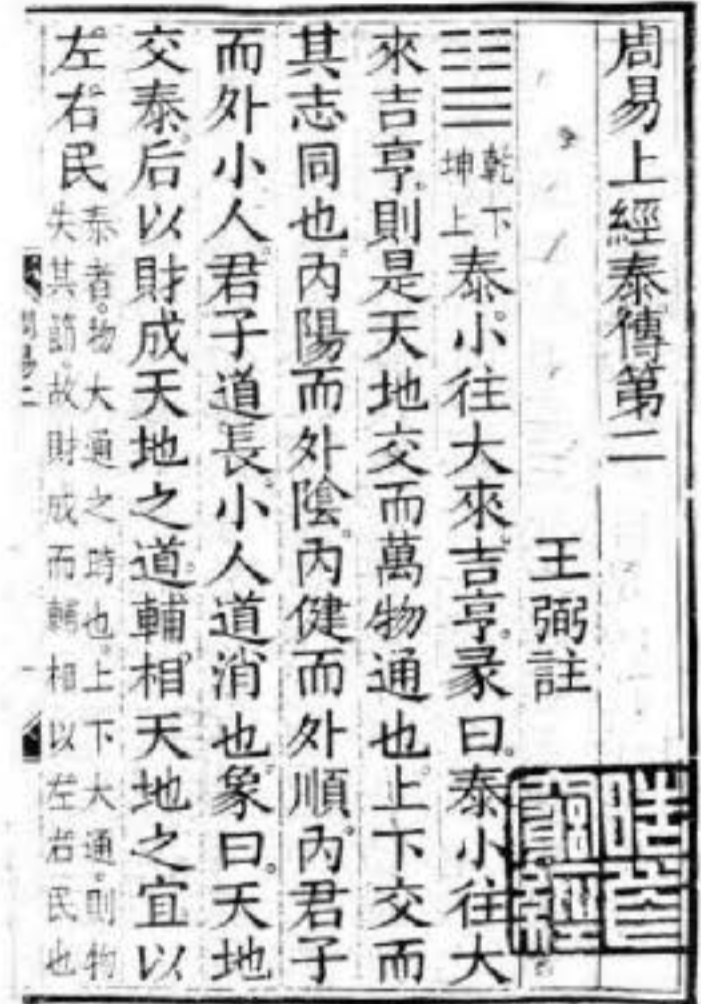 周易上經泰傳第二
王弼註
䷊乾下坤上泰。小往大來。吉亨。彖曰。泰小往大
來吉亨。則是天地交而萬物通也。上下交而
其志同也。內陽而外陰。內健而外順。內君子
而外小人。君子道長。小人道消也。象曰。天地
交泰。后以財成天地之道。輔相天地之宜。以
左右民泰者。物大通之時也。上下大通。則物
失其節。故財成而輔相以左右民也